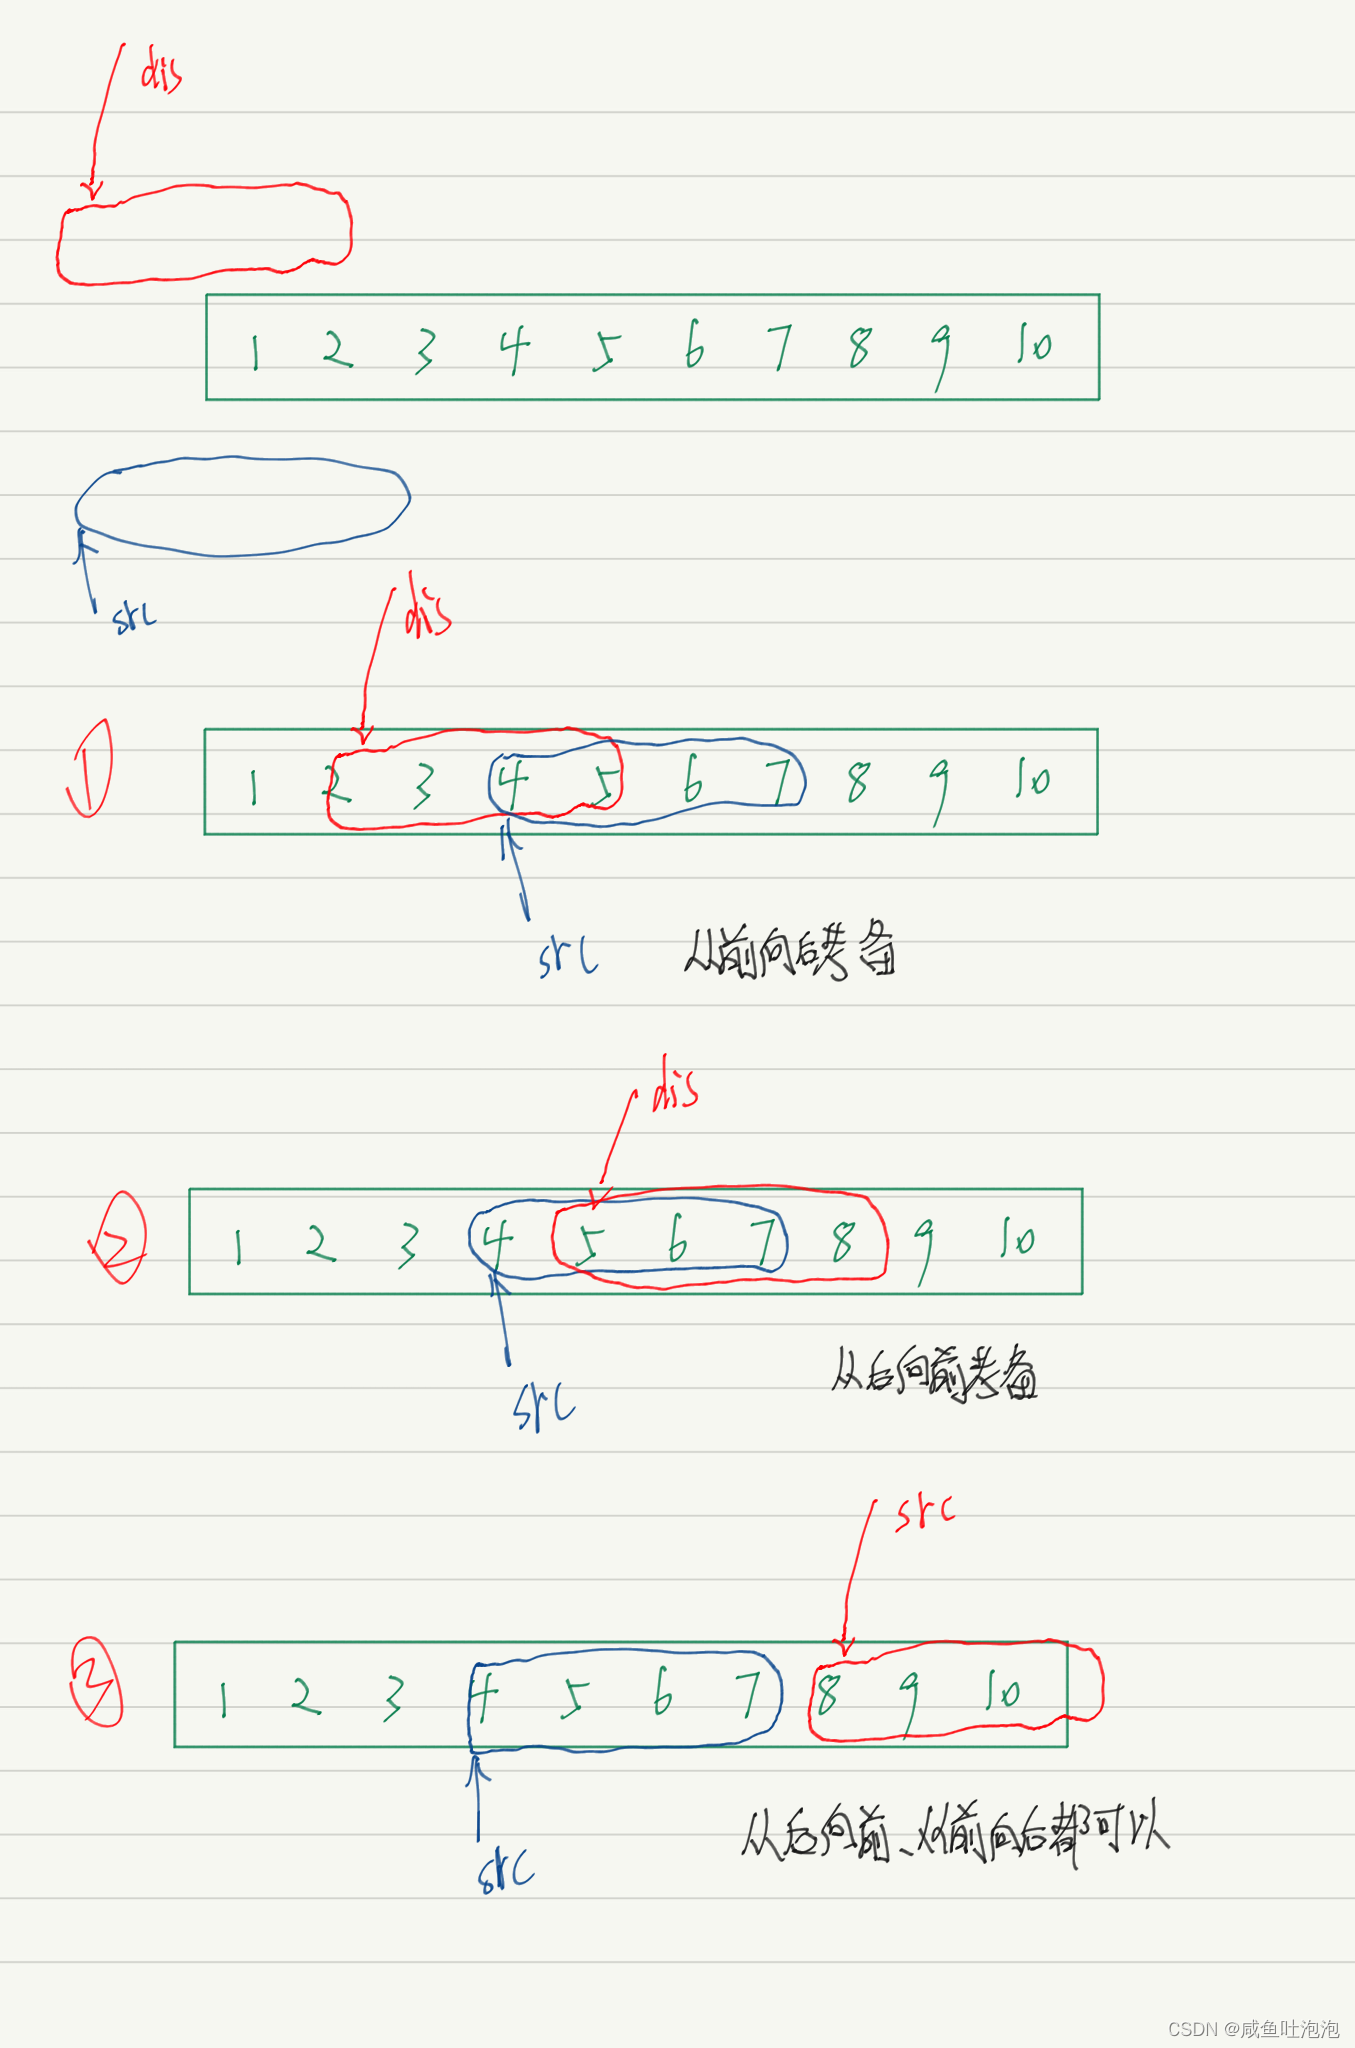 dis
1 2 3 4 5 6 7 8 9 10
src
dis
① 1 2 3 4 5 6 7 8 9 10
src 从前向后考备
dis
② 1 2 3 4 5 6 7 8 9 10
从后向前考备
src
src
③ 1 2 3 4 5 6 7 8 9 10
从后向前、从前向后都可以
src
CSDN @咸鱼吐泡泡